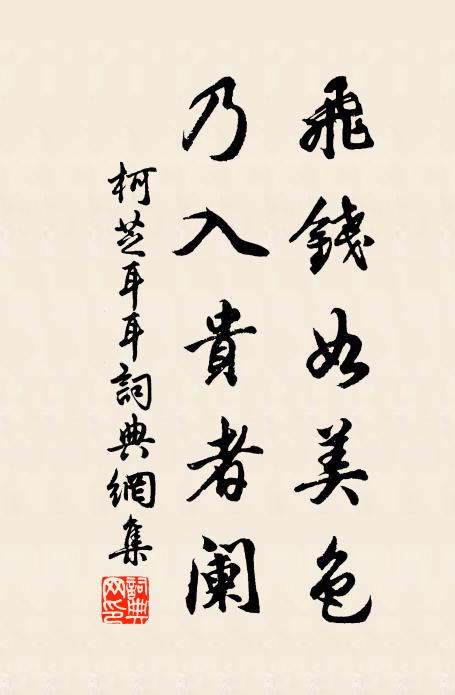 飛錢如美色
乃入貴者阑
柯芝耳耳詞典網集
詞典网印